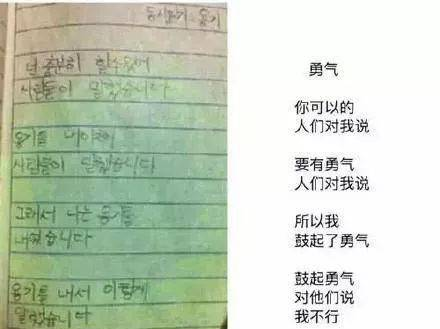 용기
넌 충분히 할수있어
사람들이 말했습니다
용기를 내야해
사람들이 말했습니다
그래서 나는 용기를
내었습니다
용기를 내서 이렇게
말했습니다
勇气
你可以的
人们对我说
要有勇气
人们对我说
所以我
鼓起了勇气
鼓起勇气
对他们说
我不行